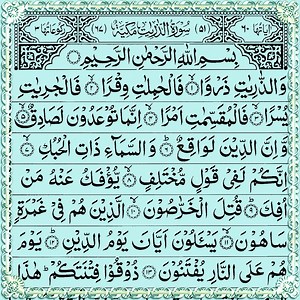 اٰیَاتُهَا ٦٠ (٥١) سُوْرَةُ الذّٰرِیٰتِ مَكِّیَّةٌ (٦٧) رُكُوْعَاتُهَا ٣
بِسْمِ اللّٰهِ الرَّحْمٰنِ الرَّحِیْمِ
وَالذّٰرِیٰتِ ذَرْوًا ۝١ فَالْحٰمِلٰتِ وِقْرًا ۝٢ فَالْجٰرِیٰتِ
یُسْرًا ۝٣ فَالْمُقَسِّمٰتِ اَمْرًا ۝٤ اِنَّمَا تُوْعَدُوْنَ لَصَادِقٌ ۝٥
وَّاِنَّ الدِّیْنَ لَوَاقِعٌ ۝٦ وَالسَّمَآءِ ذَاتِ الْحُبُكِ ۝٧
اِنَّكُمْ لَفِیْ قَوْلٍ مُّخْتَلِفٍ ۝٨ یُّؤْفَكُ عَنْهُ مَنْ
اُفِكَ ۝٩ قُتِلَ الْخَرّٰصُوْنَ ۝١٠ الَّذِیْنَ هُمْ فِیْ غَمْرَةٍ
سَاهُوْنَ ۝١١ یَسْـَٔلُوْنَ اَیَّانَ یَوْمُ الدِّیْنِ ۝١٢ یَوْمَ
هُمْ عَلَی النَّارِ یُفْتَنُوْنَ ۝١٣ ذُوْقُوْا فِتْنَتَكُمْ هٰذَا